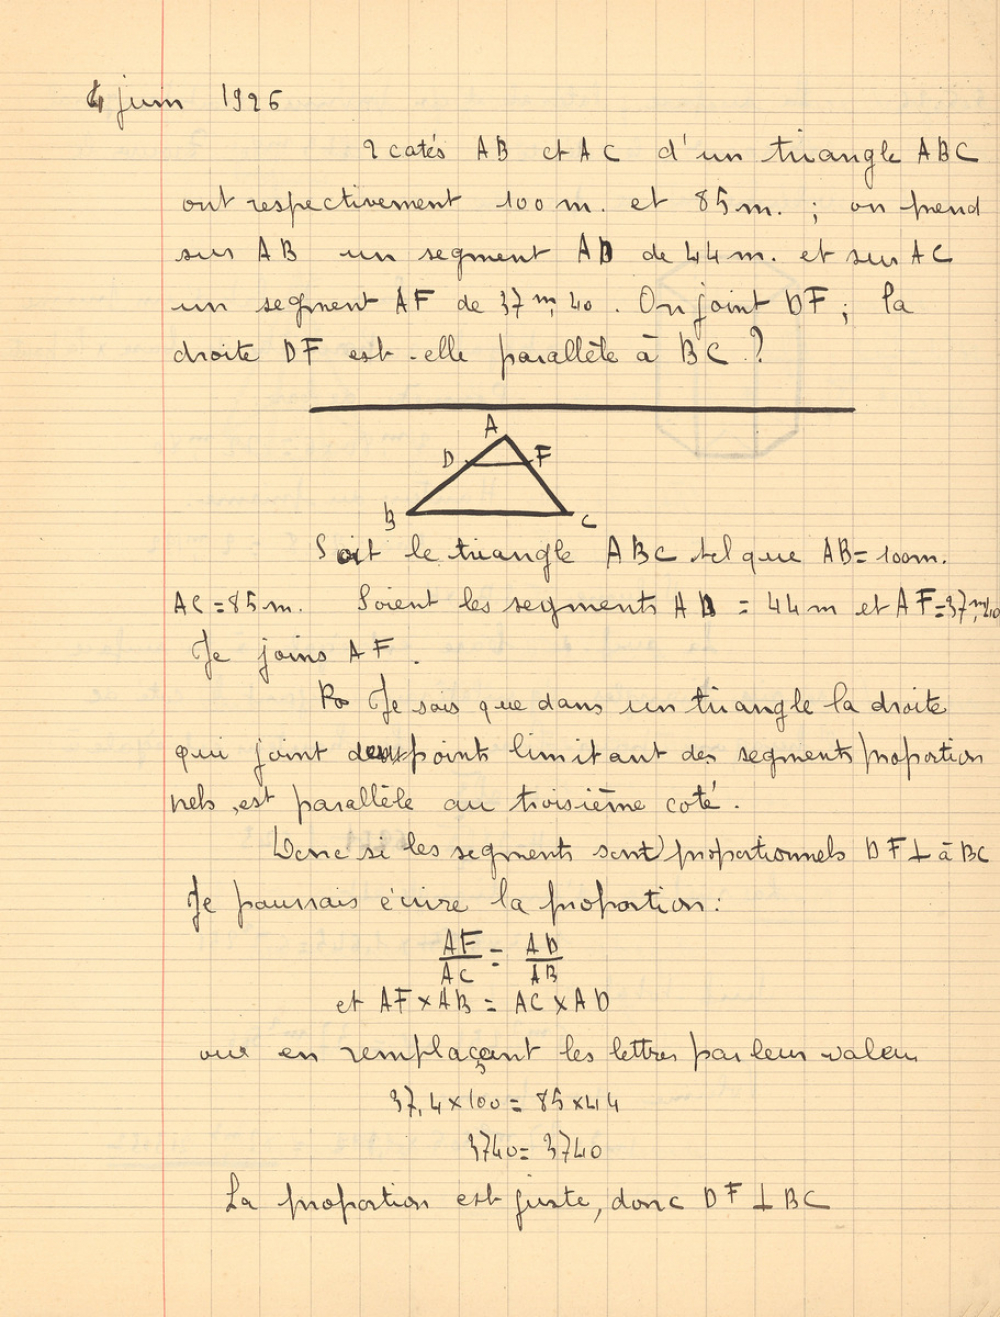 4 juin 1926
2 cotés AB et AC d'un triangle ABC
ont respectivement 100 m. et 85 m. ; on prend
sur AB un segment AD de 44 m. et sur AC
un segment AF de 37 m, 40. On joint DF ; la
droite DF est-elle parallèle à BC ?
A
D F
B C
Soit le triangle ABC tel que AB = 100m.
AC = 85 m. Soient les segments AD = 44 m et AF = 37 m, 40
Je joins AF.
Je sais que dans un triangle la droite
qui joint deux points limitant des segments proportion
nels, est parallèle au troisième coté.
Donc si les segments sont proportionnels DF ⊥ à BC
Je pourrais écrire la proportion :
AF/AC = AD/AB
et AF × AB = AC × AD
ou en remplaçant les lettres par leur valeur
37,4 × 100 = 85 × 44
3740 = 3740
La proportion est juste, donc DF ⊥ BC